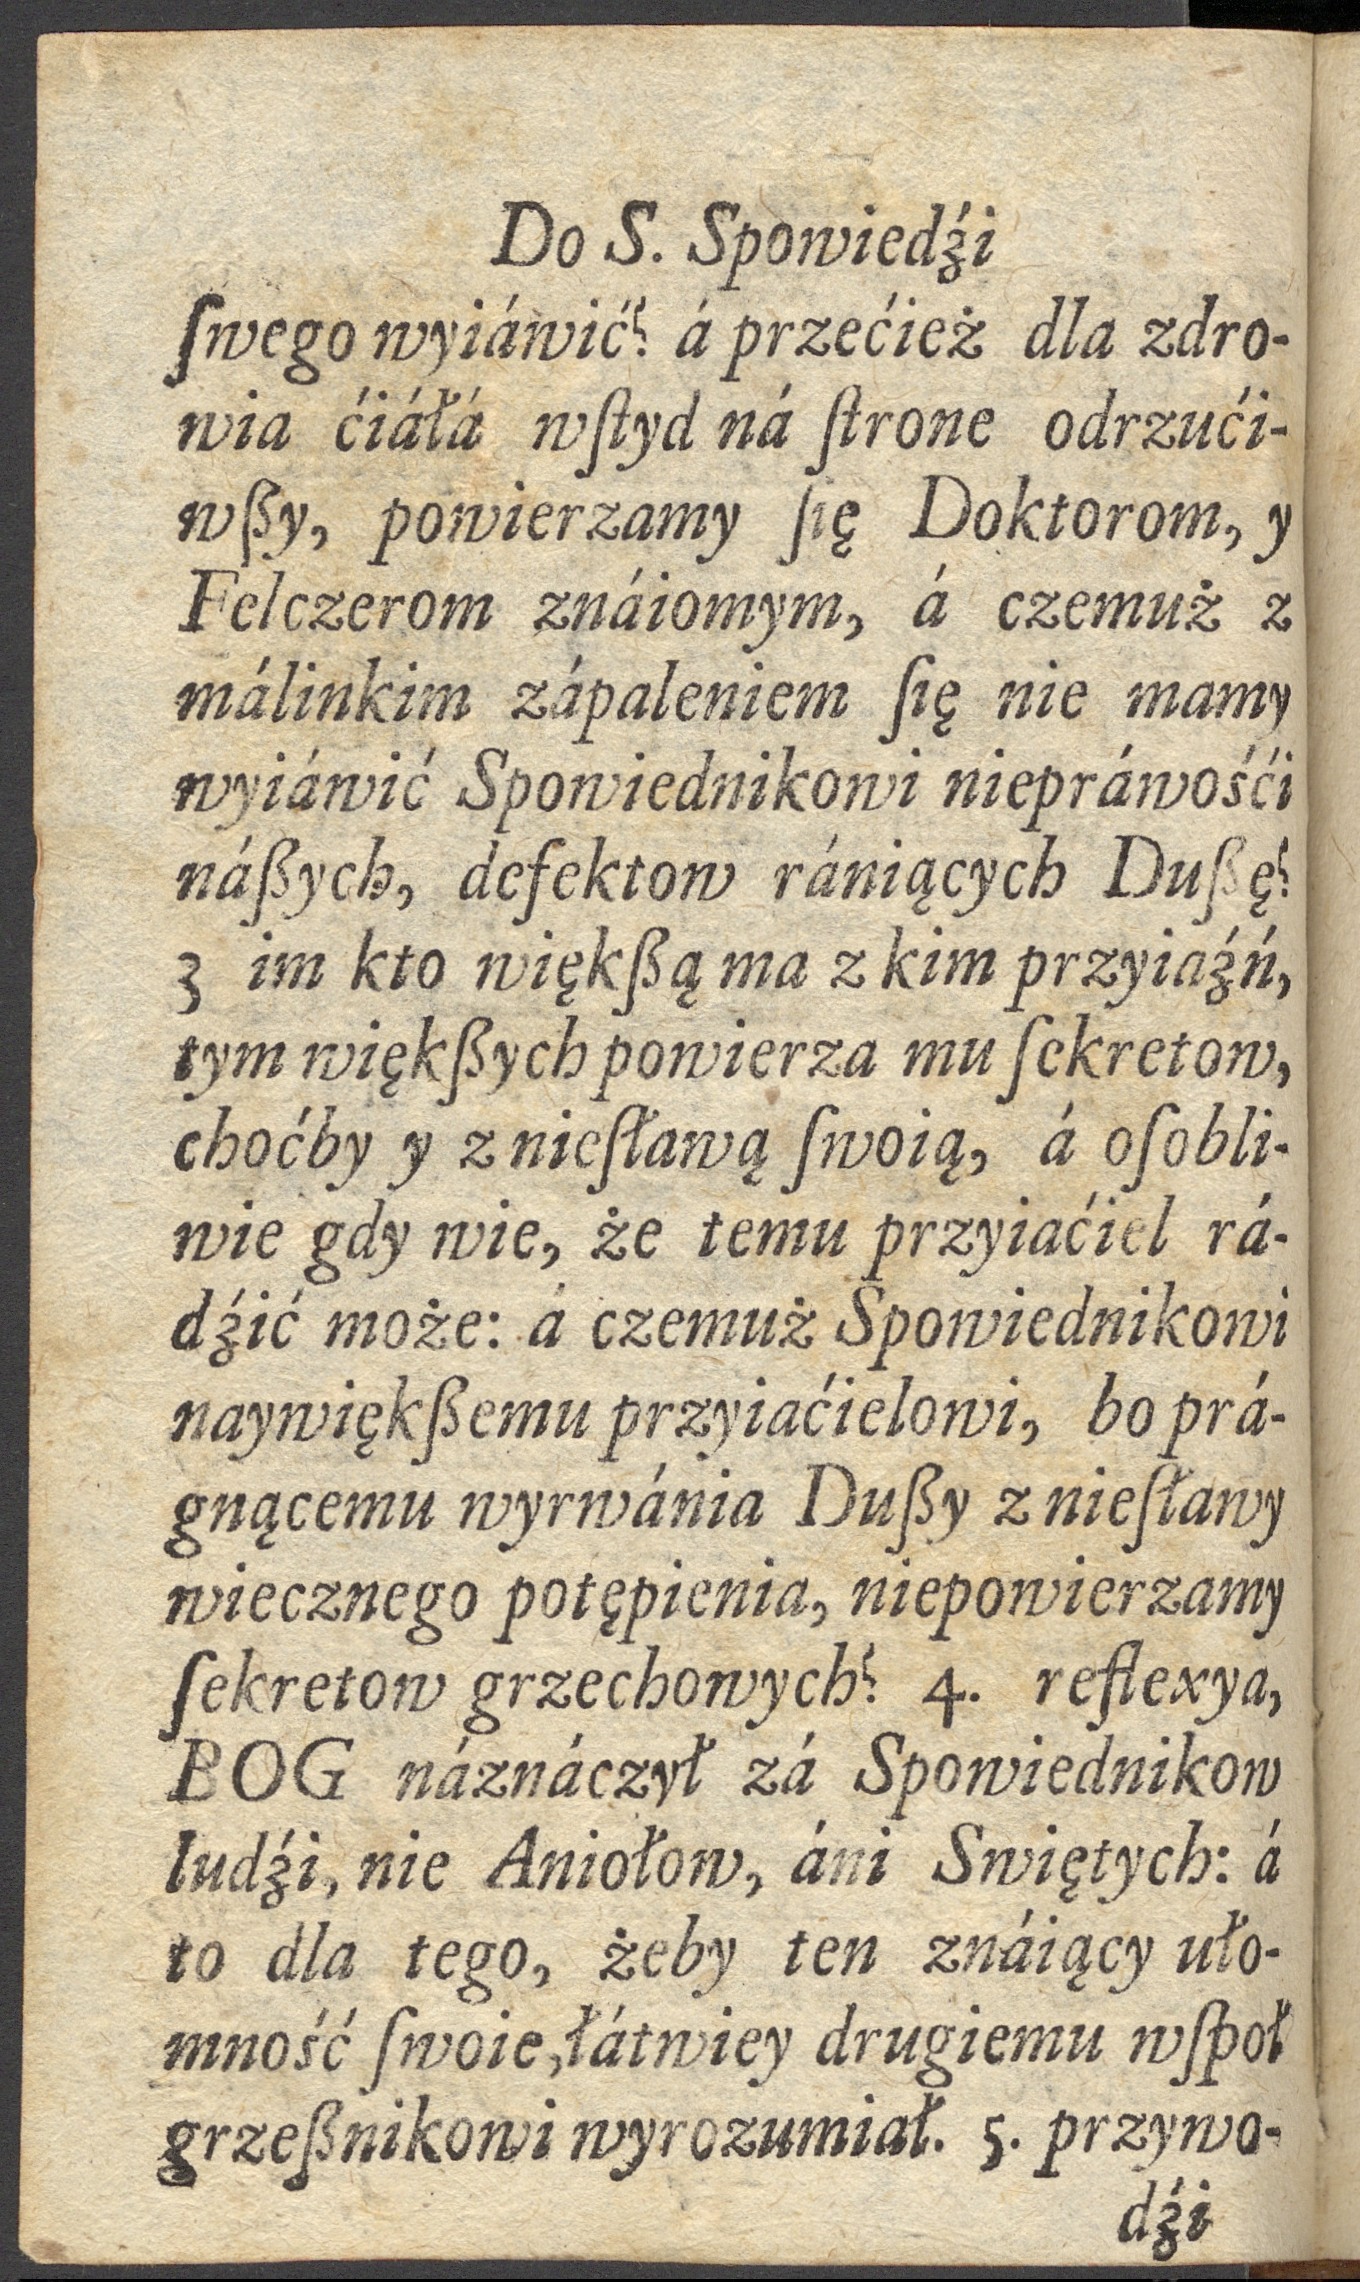 Do S. Spowiedźi
ſwego wyiáwić? á przećież dla zdro-
wia ćiáłá wſtyd ná ſtrone odrzući-
wßy, powierzamy ſię Doktorom, y
Felczerom znáiomym, á czemuż z
málinkim zápaleniem ſię nie mamy
wyiáwić Spowiednikowi niepráwośći
náßych, defektow rániących Dußę?
3 im kto więkßą ma z kim przyiaźń,
tym więkßych powierza mu ſekretow,
choćby y z nieſławą ſwoią, á oſobli-
wie gdy wie, że temu przyiaćiel rá-
dźić może: á czemuż Spowiednikowi
naywiękßemu przyiaćielowi, bo prá-
gnącemu wyrwánia Dußy z nieſławy
wiecznego potępienia, niepowierzamy
ſekretow grzechowych? 4. reflexya,
BOG náznáczył zá Spowiednikow
ludźi, nie Aniołow, áni Swiętych: á
to dla tego, żeby ten znáiący uło-
mność ſwoie, łátwiey drugiemu wſpoł
grzeßnikowi wyrozumiał. 5. przywo-
dźi